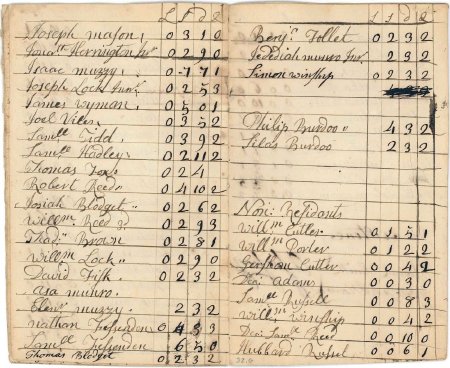 L s d q
Joseph mason, 0 3 1 0
Jona.th Herrington Jur 0 2 9 0
Isaac muzzy, 0 7 7 1
Joseph Lock Junr. 0 2 5 3
James wyman, 0 5 0 1
Joel Viles, 0 3 5 2
Saml.l Tidd 0 3 9 2
Saml.l Hadley, 0 2 11 2
Thomas Fox, 0 2 4
Robert Reed 0 4 10 2
Josiah Blodget 0 2 6 2
Will.m Reed 0 2 9 3
Thad.s Brown 0 2 8 1
Will.m Lock 0 2 9 0
David Fisk 0 2 3 2
Asa munro.
Eben.r muzzy 2 3 2
nathan Fesenden 0 4 3 3
Sam.ll Fesenden 6 5 0
Thomas Blodget 0 2 3 2
L s d q
Benj.a Follet 0 2 3 2
Jedediah munro Jur. 2 3 2
Simon winship 0 2 3 2
Philip Burdoo 4 3 2
Silas Burdoo 2 3 2
Non: Residants
Will.m Cutler 0 1 5 1
Will.m Porter 0 1 2 2
Gershom Cutter 0 0 4 2
Dea: Adams 0 0 3 0
Sam.ll Russell 0 0 8 3
Will.m winship 0 0 4 2
Dea: Sam.ll Reed 0 0 10 0
Hubbard Russel 0 0 6 1